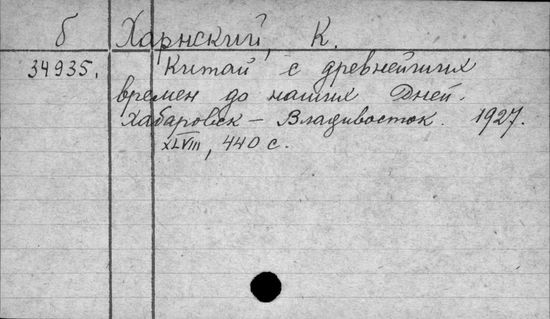 б Харнский, К.
34935. Китай с древнейших
времен до наших Дней.
Хабаровск - Владивосток. 1927.
XLVIII, 440 с.